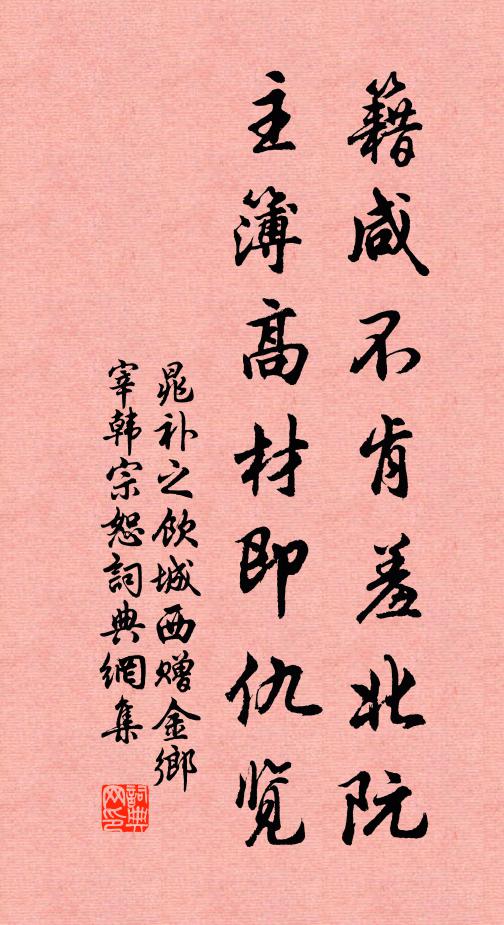 籍咸不肯羞北阮
主簿高材即仇览
晁补之飲城西赠金鄉
宰韩宗恕詞典網集